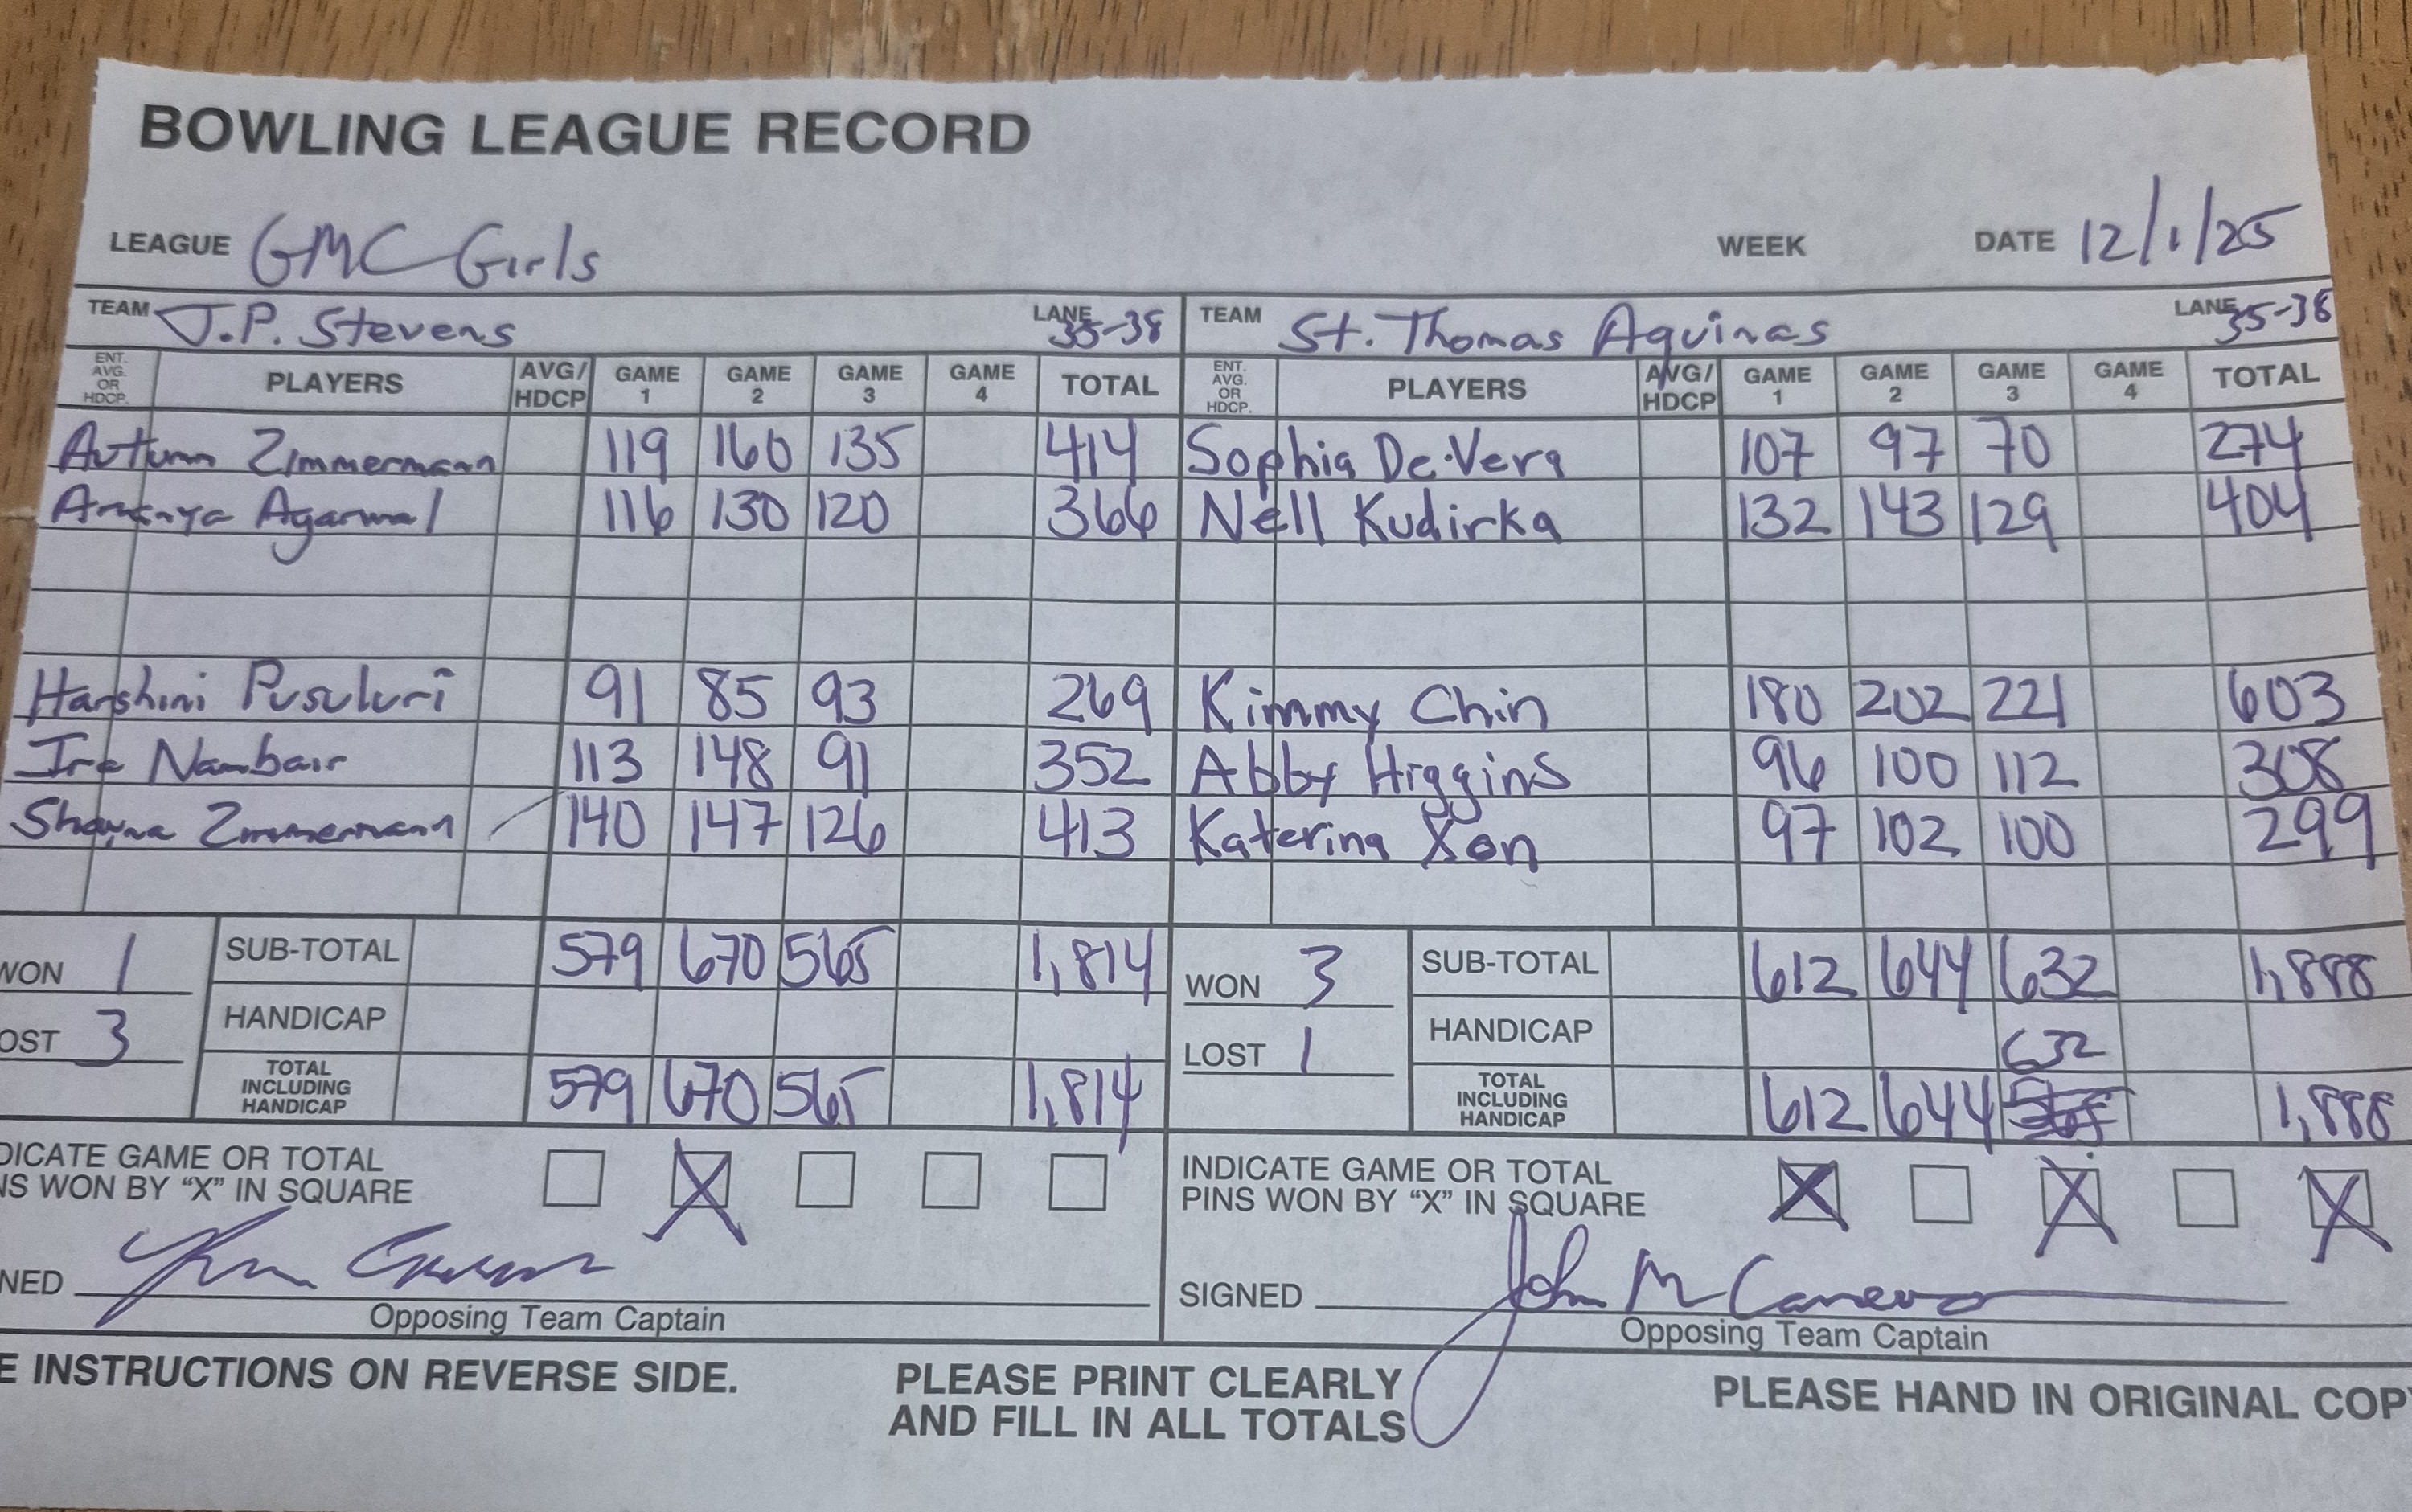 BOWLING LEAGUE RECORD
LEAGUE GMC Girls WEEK DATE 12/1/25
TEAM J.P. Stevens LANE 35-38 TEAM St. Thomas Aquinas LANE 35-38
ENT. AVG. OR HDCP. PLAYERS AVG/ HDCP GAME 1 GAME 2 GAME 3 GAME 4 TOTAL ENT. AVG. OR HDCP. PLAYERS AVG/ HDCP GAME 1 GAME 2 GAME 3 GAME 4 TOTAL
Autumn Zimmermann 119 160 135 414 Sophia De Vera 107 97 70 274
Agarwal 116 130 120 366 Nell Kudirka 132 143 129 404
Harshini Pusuluri 91 85 93 269 Kimmy Chin 180 202 221 603
Ira Nambair 113 148 91 352 Abby Higgins 96 100 112 308
Shayna Zimmermann 140 147 126 413 Katerina Xon 97 102 100 299
WON 1 SUB-TOTAL 579 670 565 1,814 WON 3 SUB-TOTAL 612 644 632 1,888
OST 3 HANDICAP LOST 1 HANDICAP 632
TOTAL INCLUDING HANDICAP 579 670 565 1,814 TOTAL INCLUDING HANDICAP 612 644 1,888
DICATE GAME OR TOTAL X INDICATE GAME OR TOTAL X X X
NS WON BY "X" IN SQUARE PINS WON BY "X" IN SQUARE
NED SIGNED John M
Opposing Team Captain Opposing Team Captain
E INSTRUCTIONS ON REVERSE SIDE. PLEASE PRINT CLEARLY PLEASE HAND IN ORIGINAL COP
AND FILL IN ALL TOTALS